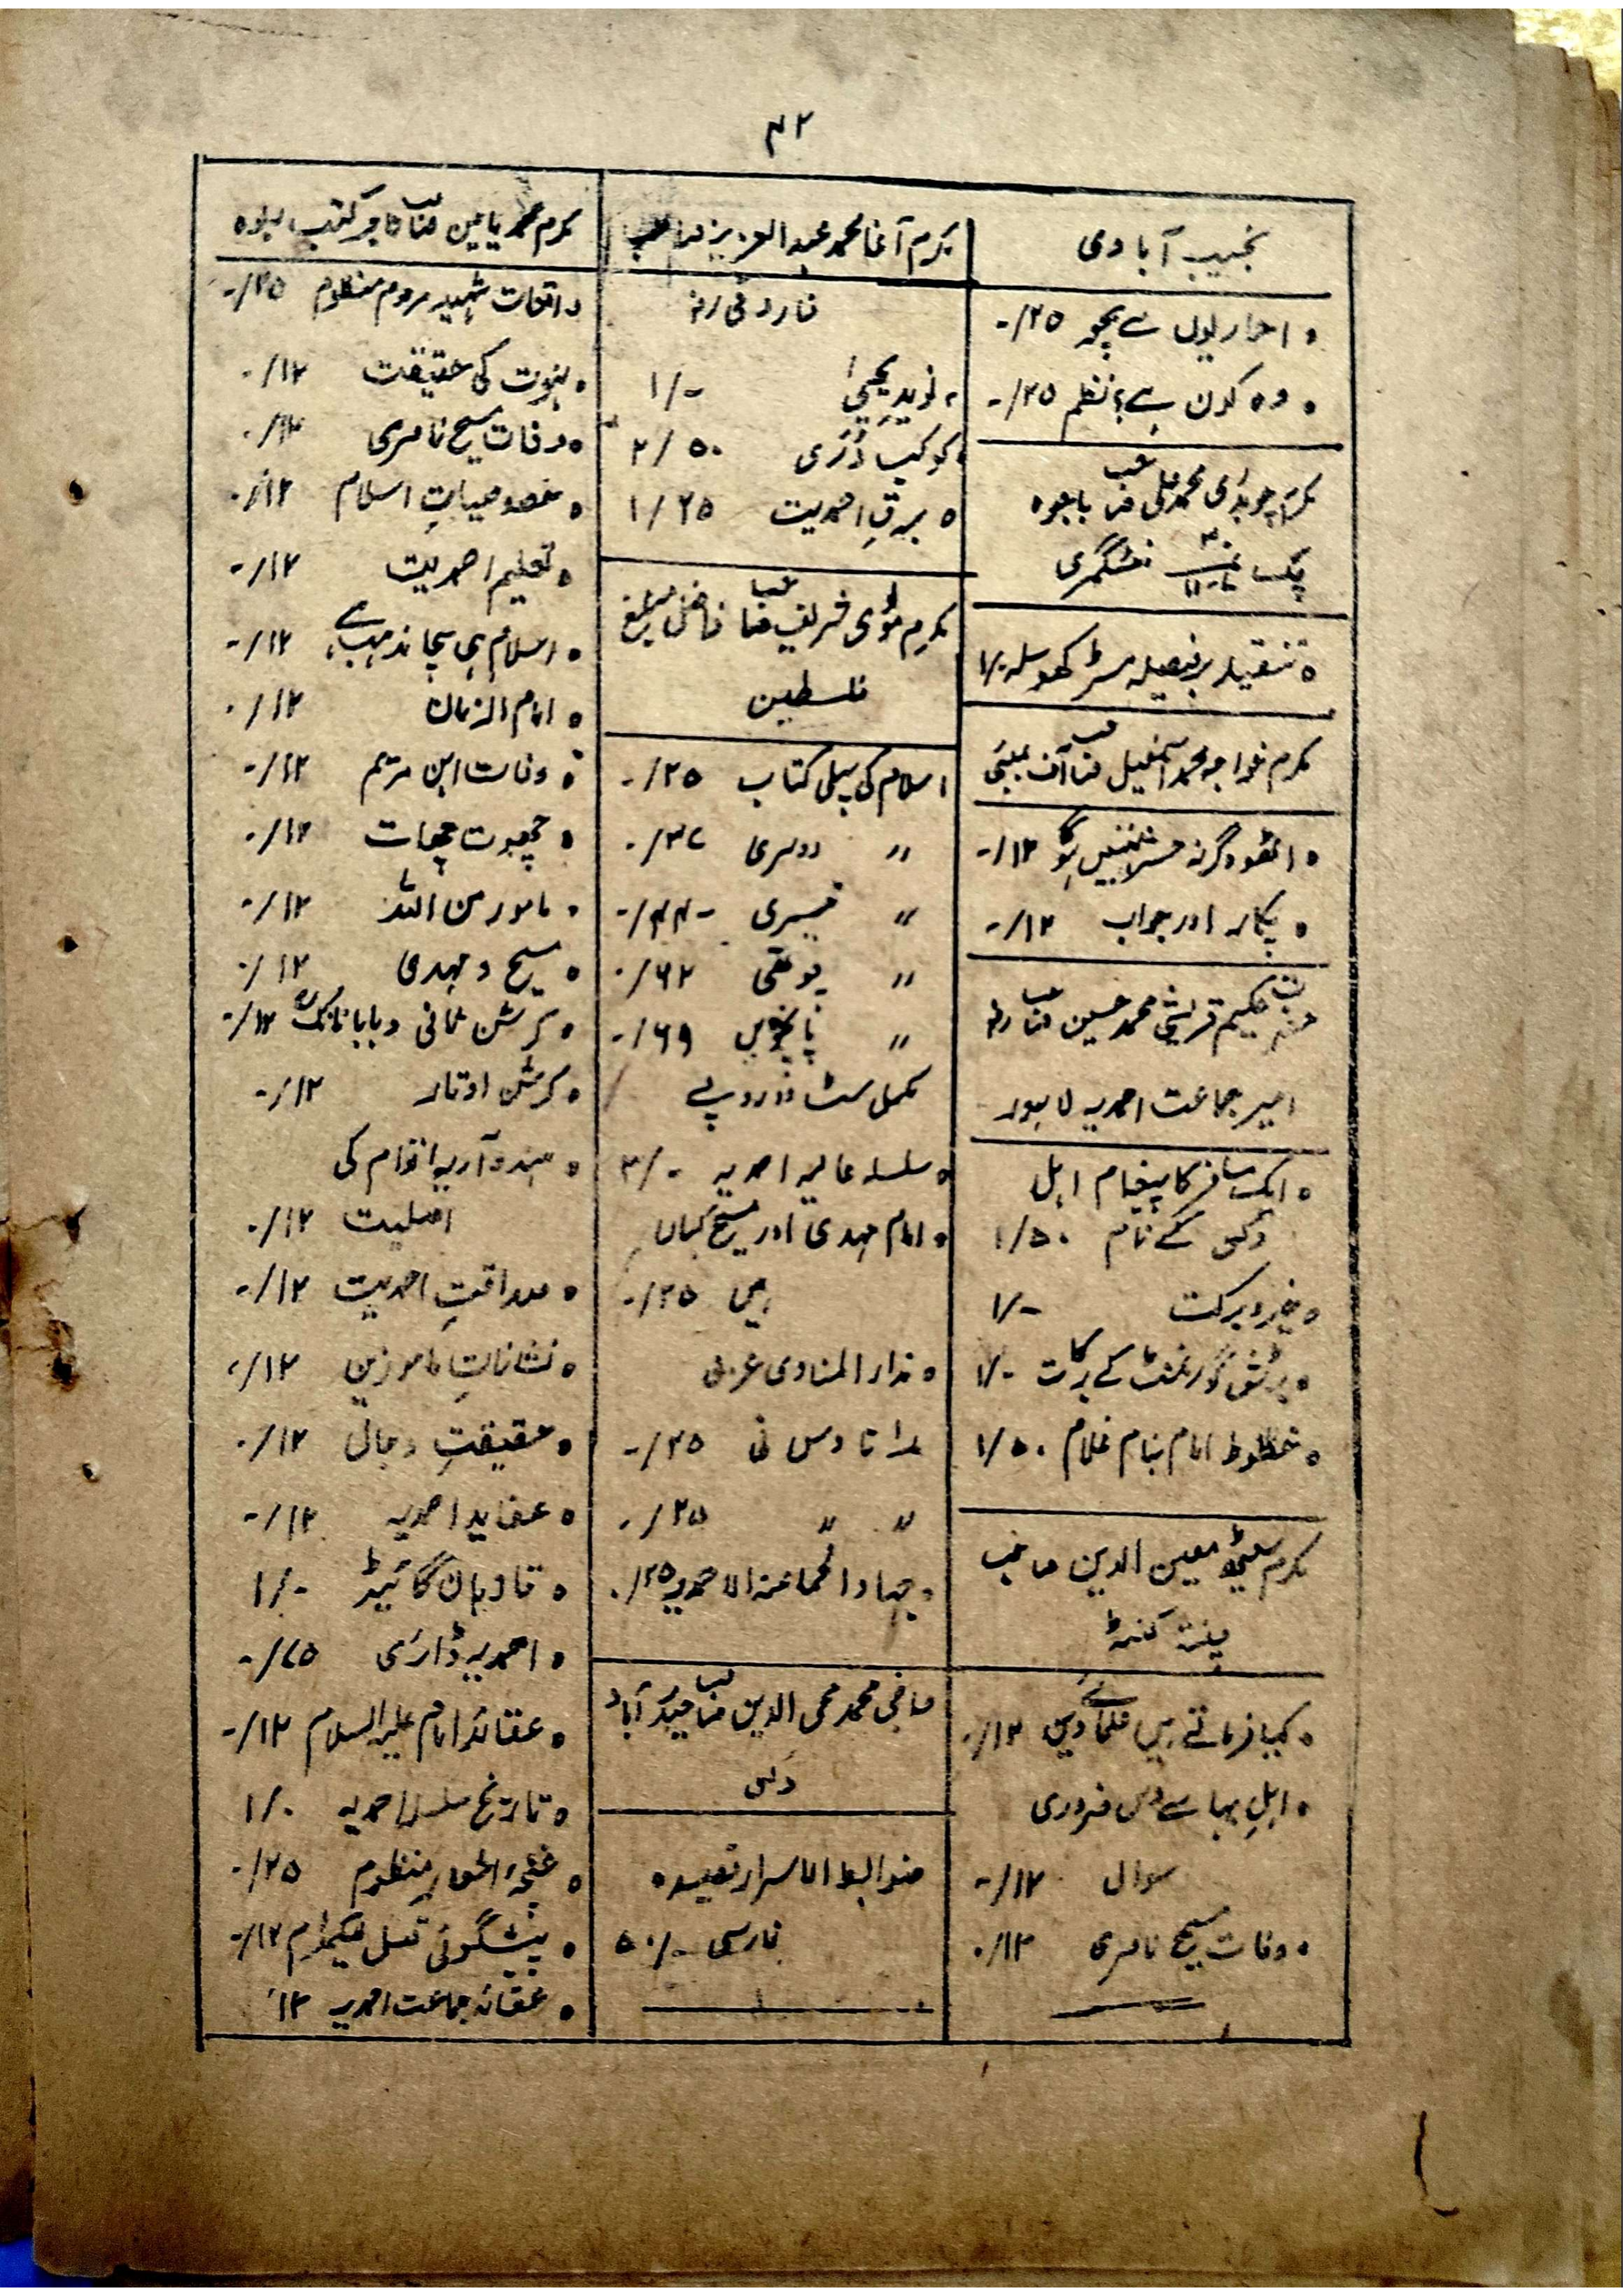 ۴۲
نجیب آبادی
۰ احراریوں سے بچو ۲۵/-
۰ وہ کون ہے؟ نظم ۲۵/-
مکرم چوہدری محمد علی صاحب باجوہ
چک نمبر منٹگمری
۰ تنقید بر فیصلہ مسٹر کھوسلہ ۱/-
مکرم خواجہ محمد اسمٰعیل صاحب آف بمبئی
۰ اٹھو وگرنہ حشر نہیں ہوگا ۱۲/-
۰ پکار اور جواب ۱۲/-
حضرت حکیم قریشی محمد حسین صاحب رضؓ
امیر جماعت احمدیہ لاہور
۰ ایک مسافر کا پیغام اہل
دکن کے نام ۱/۵۰
۰ خیر و برکت ۱/-
۰ برٹش گورنمنٹ کے برکات ۱/-
۰ خطوط امام بنام غلام ۱/۵۰
مکرم سیٹھ معین الدین صاحب
چنتہ کنٹہ
۰ کیا فرماتے ہیں علمائے دین ۱۲/-
۰ اہل بہا سے دس ضروری
سوال ۱۲/-
۰ وفات مسیح ناصری ۱۲/-
مکرم آغا محمد عبد العزیز صاحب
فاروقی رضؓ
۰ نوید یحییٰ ۱/-
۰ کوکب دُرّی ۲/۵۰
۰ برقِ احمدیت ۱/۲۵
مکرم مولوی شریف صاحب فاضل مبلغ
فلسطین
اسلام کی پہلی کتاب ۲۵/-
〃 دوسری ۳۷/-
〃 تیسری ۴۴/-
〃 چوتھی ۶۲/-
〃 پانچویں ۶۹/-
مکمل سٹ دو روپے
۰ سلسلہ عالیہ احمدیہ ۳/-
۰ امام مہدی اور مسیح کہاں
ہیں ۲۵/-
۰ نداء المنادی عربی
۱ تا دس فی ۲۵/-
〃 〃 ۲۵/-
۰ جہاد الجماعۃ الاحمدیہ ۲۵/-
حاجی محمد محی الدین صاحب حیدر آباد
دکن
ضوابط الاسرار قصیدہ
فارسی ۵۰/-
مکرم محمد یامین صاحب تاجر کتب ربوہ
واقعات شہید مرحوم منظوم ۲۵/-
۰ نبوت کی حقیقت ۱۲/-
۰ وفات مسیح ناصری ۱۲/-
۰ خصوصیاتِ اسلام ۱۲/-
۰ تعلیم احمدیت ۱۲/-
۰ اسلام ہی سچا مذہب ہے ۱۲/-
۰ امام الزمان ۱۲/-
۰ وفات ابن مریم ۱۲/-
۰ چھوت چھات ۱۲/-
۰ مامور من اللہ ۱۲/-
۰ مسیح و مہدی ۱۲/-
۰ کرشن ثانی و بابا نانک ۱۲/-
۰ کرشن اوتار ۱۲/-
۰ ہندو آریہ اقوام کی
اصلیت ۱۲/-
۰ صداقتِ احمدیت ۱۲/-
۰ نشاناتِ مامورین ۱۲/-
۰ حقیقتِ دجال ۱۲/-
۰ عقاید احمدیہ ۱۲/-
۰ قادیان گائیڈ ۱/-
۰ احمدیہ ڈائری ۷۵/-
۰ عقائد امام علیہ السلام ۱۲/-
۰ تاریخ سلسلہ احمدیہ ۱/-
۰ منظوم ۲۵/-
۰ پیشگوئی قتل لیکھرام ۱۲/-
۰ عقائد جماعت احمدیہ ۱۲